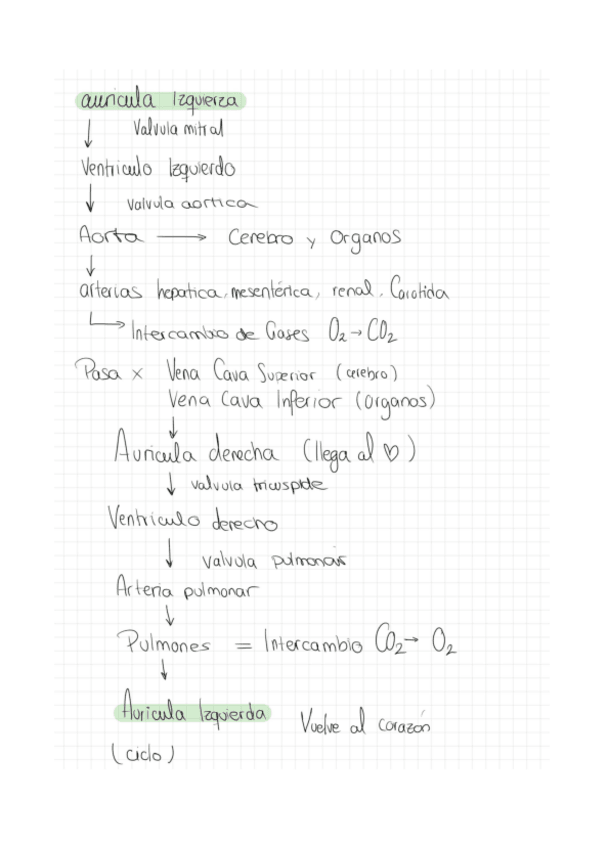 auricula Izquierza
↓ Valvula mitral
Ventriculo Izquierdo
↓ valvula aortica
Aorta → Cerebro y Organos
↓
arterias hepatica, mesentérica, renal, Carotida
↳ Intercambio de Gases O₂ → CO₂
Pasa x Vena Cava Superior (cerebro)
Vena Cava Inferior (organos)
↓
Auricula derecha (llega al ♡)
↓ valvula tricuspide
Ventriculo derecho
↓ valvula pulmonar
Arteria pulmonar
↓
Pulmones = Intercambio CO₂ → O₂
↓
Auricula Izquierda Vuelve al corazón
(ciclo)